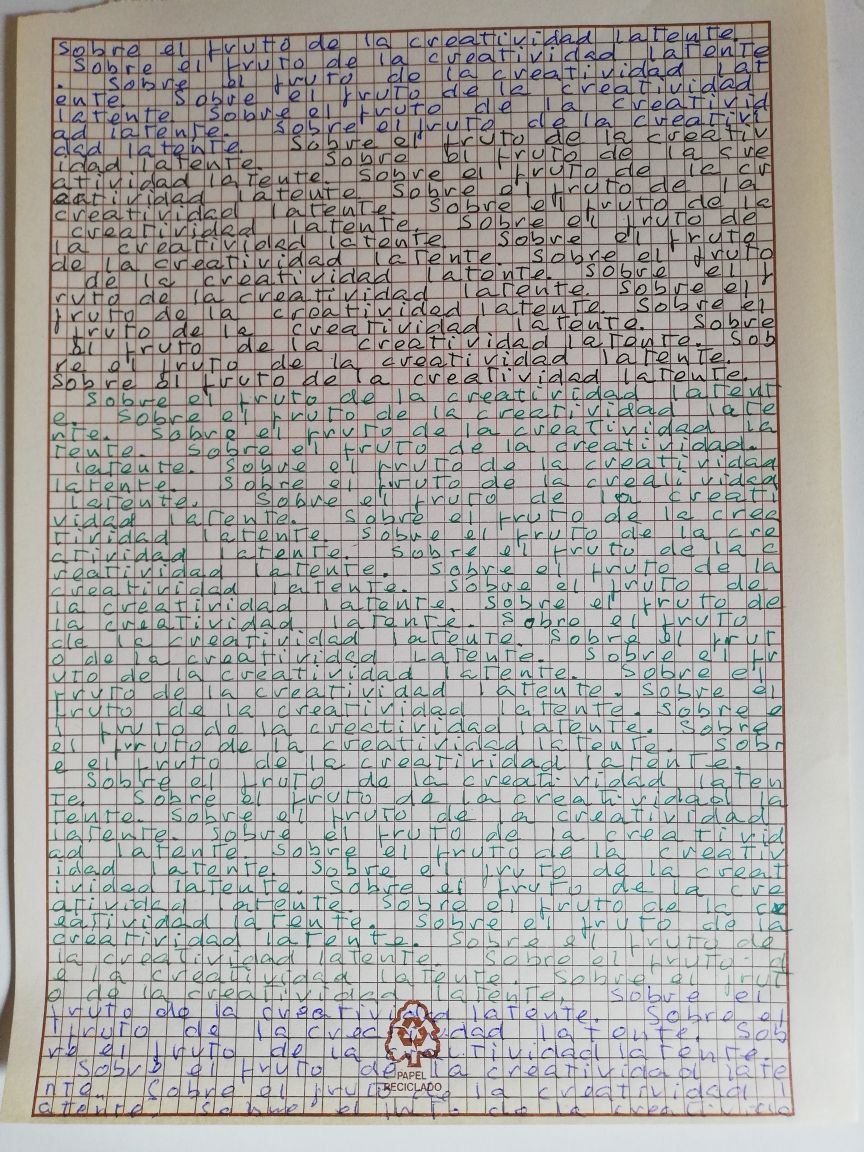 Sobre el fruto de la creatividad latente.
Sobre el fruto de la creatividad latente
. Sobre el fruto de la creatividad lat
ente. Sobre el fruto de la creatividad
latente. Sobre el fruto de la creativid
ad latente. Sobre el fruto de la creativi
dad latente. Sobre el fruto de la creativ
idad latente. Sobre el fruto de la cre
atividad latente. Sobre el fruto de la cr
eatividad latente. Sobre el fruto de la
creatividad latente. Sobre el fruto de la
creatividad latente. Sobre el fruto de
la creatividad latente. Sobre el fruto
de la creatividad latente. Sobre el fruto
de la creatividad latente. Sobre el f
ruto de la creatividad latente. Sobre el
fruto de la creatividad latente. Sobre el
fruto de la creatividad latente. Sobre
el fruto de la creatividad latente. Sob
re el fruto de la creatividad latente.
Sobre el fruto de la creatividad latente.
Sobre el fruto de la creatividad latent
e. Sobre el fruto de la creatividad late
nte. Sobre el fruto de la creatividad la
tente. Sobre el fruto de la creatividad.
latente. Sobre el fruto de la creatividad
latente. Sobre el fruto de la creatividad
latente. Sobre el fruto de la creati
vidad latente. Sobre el fruto de la crea
tividad latente. Sobre el fruto de la cre
atividad latente. Sobre el fruto de la c
reatividad latente. Sobre el fruto de la
creatividad latente. Sobre el fruto de
la creatividad latente. Sobre el fruto de
la creatividad latente. Sobre el fruto
de la creatividad latente. Sobre el frut
o de la creatividad latente. Sobre el fr
uto de la creatividad latente. Sobre el
fruto de la creatividad latente. Sobre el
fruto de la creatividad latente. Sobre e
l fruto de la creatividad latente. Sobre
el fruto de la creatividad latente. Sobr
e el fruto de la creatividad latente.
Sobre el fruto de la creatividad laten
te. Sobre el fruto de la creatividad la
tente. Sobre el fruto de la creatividad
latente. Sobre el fruto de la creativid
ad latente. Sobre el fruto de la creativ
idad latente. Sobre el fruto de la creat
ividad latente. Sobre el fruto de la cre
atividad latente. Sobre el fruto de la cr
eatividad latente. Sobre el fruto de la
creatividad latente. Sobre el fruto de
la creatividad latente. Sobre el fruto d
e la creatividad latente. Sobre el frut
o de la creatividad latente. Sobre el
fruto de la creatividad latente. Sobre el
fruto de la creatividad latente. Sob
re el fruto de la creatividad latente.
Sobre el fruto de la creatividad late
nte. Sobre el fruto de la creatividad l
atente. Sobre el fruto de la creativida
PAPEL
RECICLADO